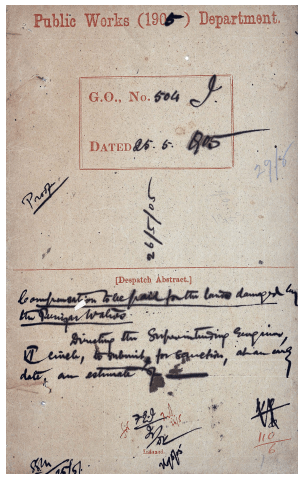 Public Works (1905) Department.
G.O., No. 504 I.
DATED 25. 5. 905
29/5
Proof
26/5/05
[Despatch Abstract.]
Compensation to be paid for the lands damaged by
the Periyar Waters.
Directing the Superintending Engineer,
V circle, to submit, for sanction, at an early
date, an estimate
110
6